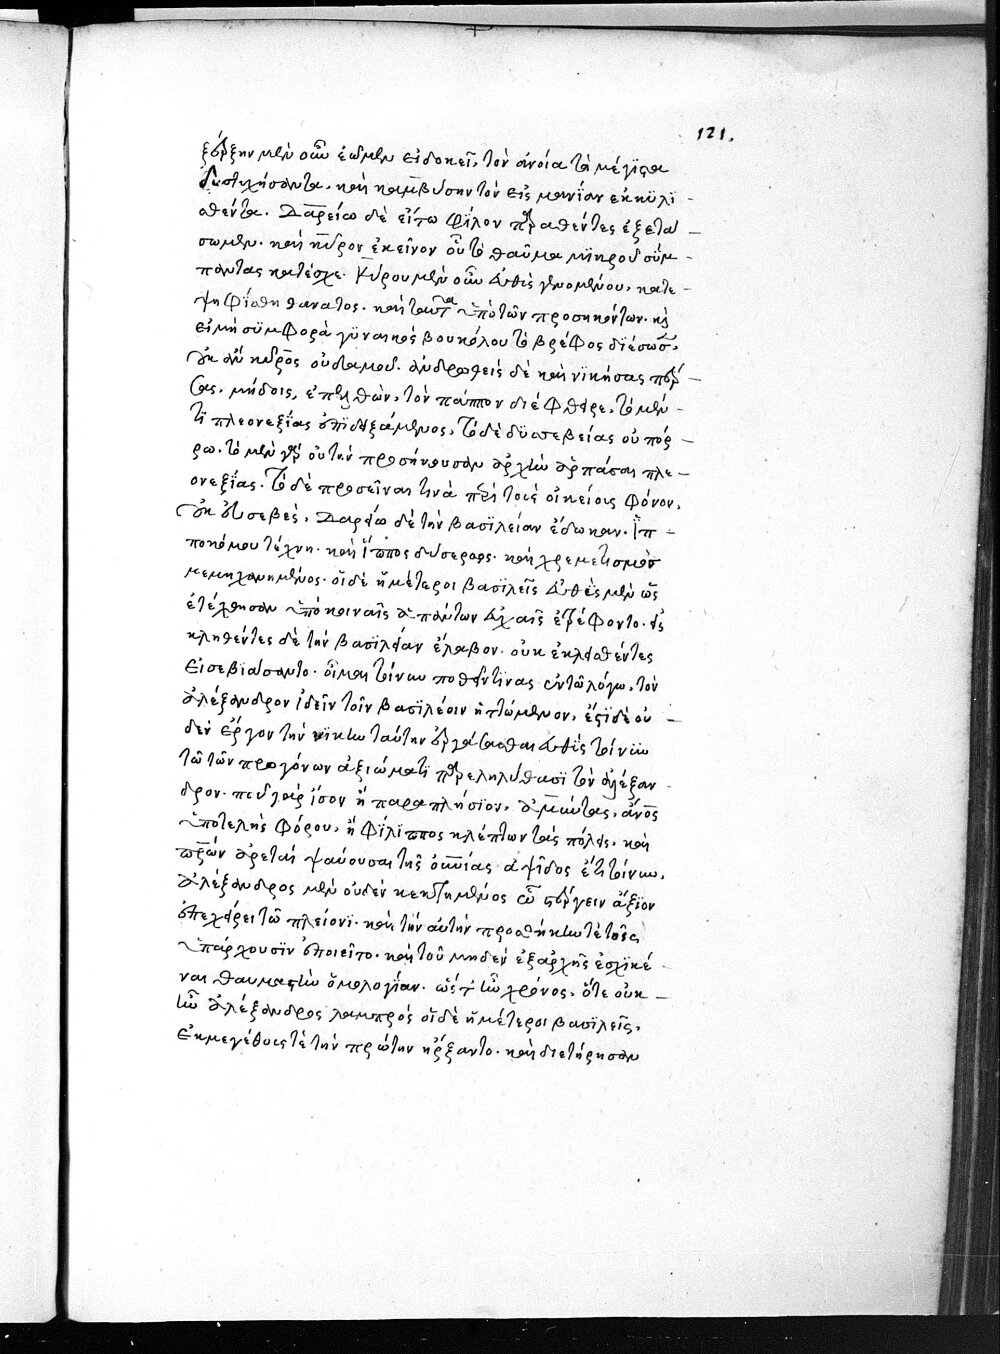 121.
ξέρξην μὲν οὖν ἐῶμεν εἰ δοκεῖ, τὸν ἀνοία τὰ μέγιστα
δυστυχήσαντα. καὶ καμβύσην τὸν εἰς μανίαν ἐκκϋλι -
σθέντα. Δαρείω δὲ εἴτω φίλον παραθέντες ἐξετά -
σωμεν. καὶ κῦρον ἐκεῖνον οὗ τὸ θαῦμα μϊκροῦ σύμ -
παντας κατέσχε. Κύρου μὲν οὖν εὐθὺς γενομένου, κατε -
ψηφίσθη θανατος. καὶ ταῦτα ὑπὸ τῶν προσηκόντων. καὶ
εἰ μὴ σϋμφορὰ γϋναικὸς βουκόλου τὸ βρέφος διέσωσε,
οὐκ ἂν κῦρος οὐδαμοῦ. ἀνδρωθεὶς δὲ καὶ νϊκήσας πέρ -
σας, μήδοις, ἐπελθὼν, τὸν πάππον διέφθειρε, τὸ μὲν -
τῆ πλεονεξίας ἐπϊδειξάμενος, τὸ δὲ δϋσσεβείας οὐ πόρ -
ρω. τὸ μὲν γὰρ οὐ τὴν προσήκουσαν ἀρχὴν ἁρπάσαι πλε -
ονεξίας. Τὸ δὲ προσεῖναι τινὰ παρὰ τοῖς οἰκείοις φόνον,
οὐκ εὐσεβὲς, Δαρείω δὲ τὴν βασϊλείαν ἔδωκαν. ἵπ -
ποκόμου τέχνη. καὶ ἵππος δύσερως. καὶ χρεμετισμὸς
μεμηχανημένος. οἱ δὲ ἡμέτεροι βασϊλεῖς εὐθὺς μὲν ὡς
ἐτέχθησαν ὑπὸ κοιναῖς ἁπάντων εὐχαῖς ἐτρέφοντο. εἰς
κληθέντες δὲ τὴν βασϊλείαν ἔλαβον. οὐκ ἐκλϊθέντες
εἰσεβϊάσαντο. οἶμαι τοίνυν ποθεῖν τϊνας ἐν τῶ λόγω, τὸν
ἀλέξανδρον ἰδεῖν τοῖν βασϊλέοιν ἡττώμενον, ἔστϊ δὲ οὐ -
δὲν ἔργον τὴν νϊκην ταύτην ἐργάσασθαι εὐθὺς τοίνϋν
τῶ τῶν προγόνων ἀξιώματι παρεληλύθασϊ τὸν ἀλέξαν -
δρον. ποῦ γὰρ ἴσον ἢ παραπλήσϊον, ἀμύντας, ἄνος
ὑποτελὴς φόρου, ἢ φίλϊππος κλέπτων τὰς πόλεις, καὶ
πρῶν ἀρεταὶ ψαύουσαι τῆς οὐνίας ἁψῖδος ἔτι τοίνυν,
ἀλέξανδρος μὲν οὐδὲν κεκτημένος ὧ στέργειν ἄξϊον
ἐπεχείρει τῶ πλείονϊ. καὶ τὴν αὐτὴν προσθήκην τὲ τοῖς
ὑπάρχουσϊν ἐποιεῖτο. καὶ τοῦ μηδὲν ἐξ ἀρχῆς ἐσχϊκέ -
ναι θαυμαστὴν ὁμολογίαν. ὥστ' ἦν χρόνος, ὅτε οὐκ -
ἦν ἀλέξανδρος λαμπρός οἱ δὲ ἡμέτεροι βασϊλεῖς,
ἐκ μεγέθους τὲ τὴν πρώτην ἤρξαντο. καὶ διετήρησαν